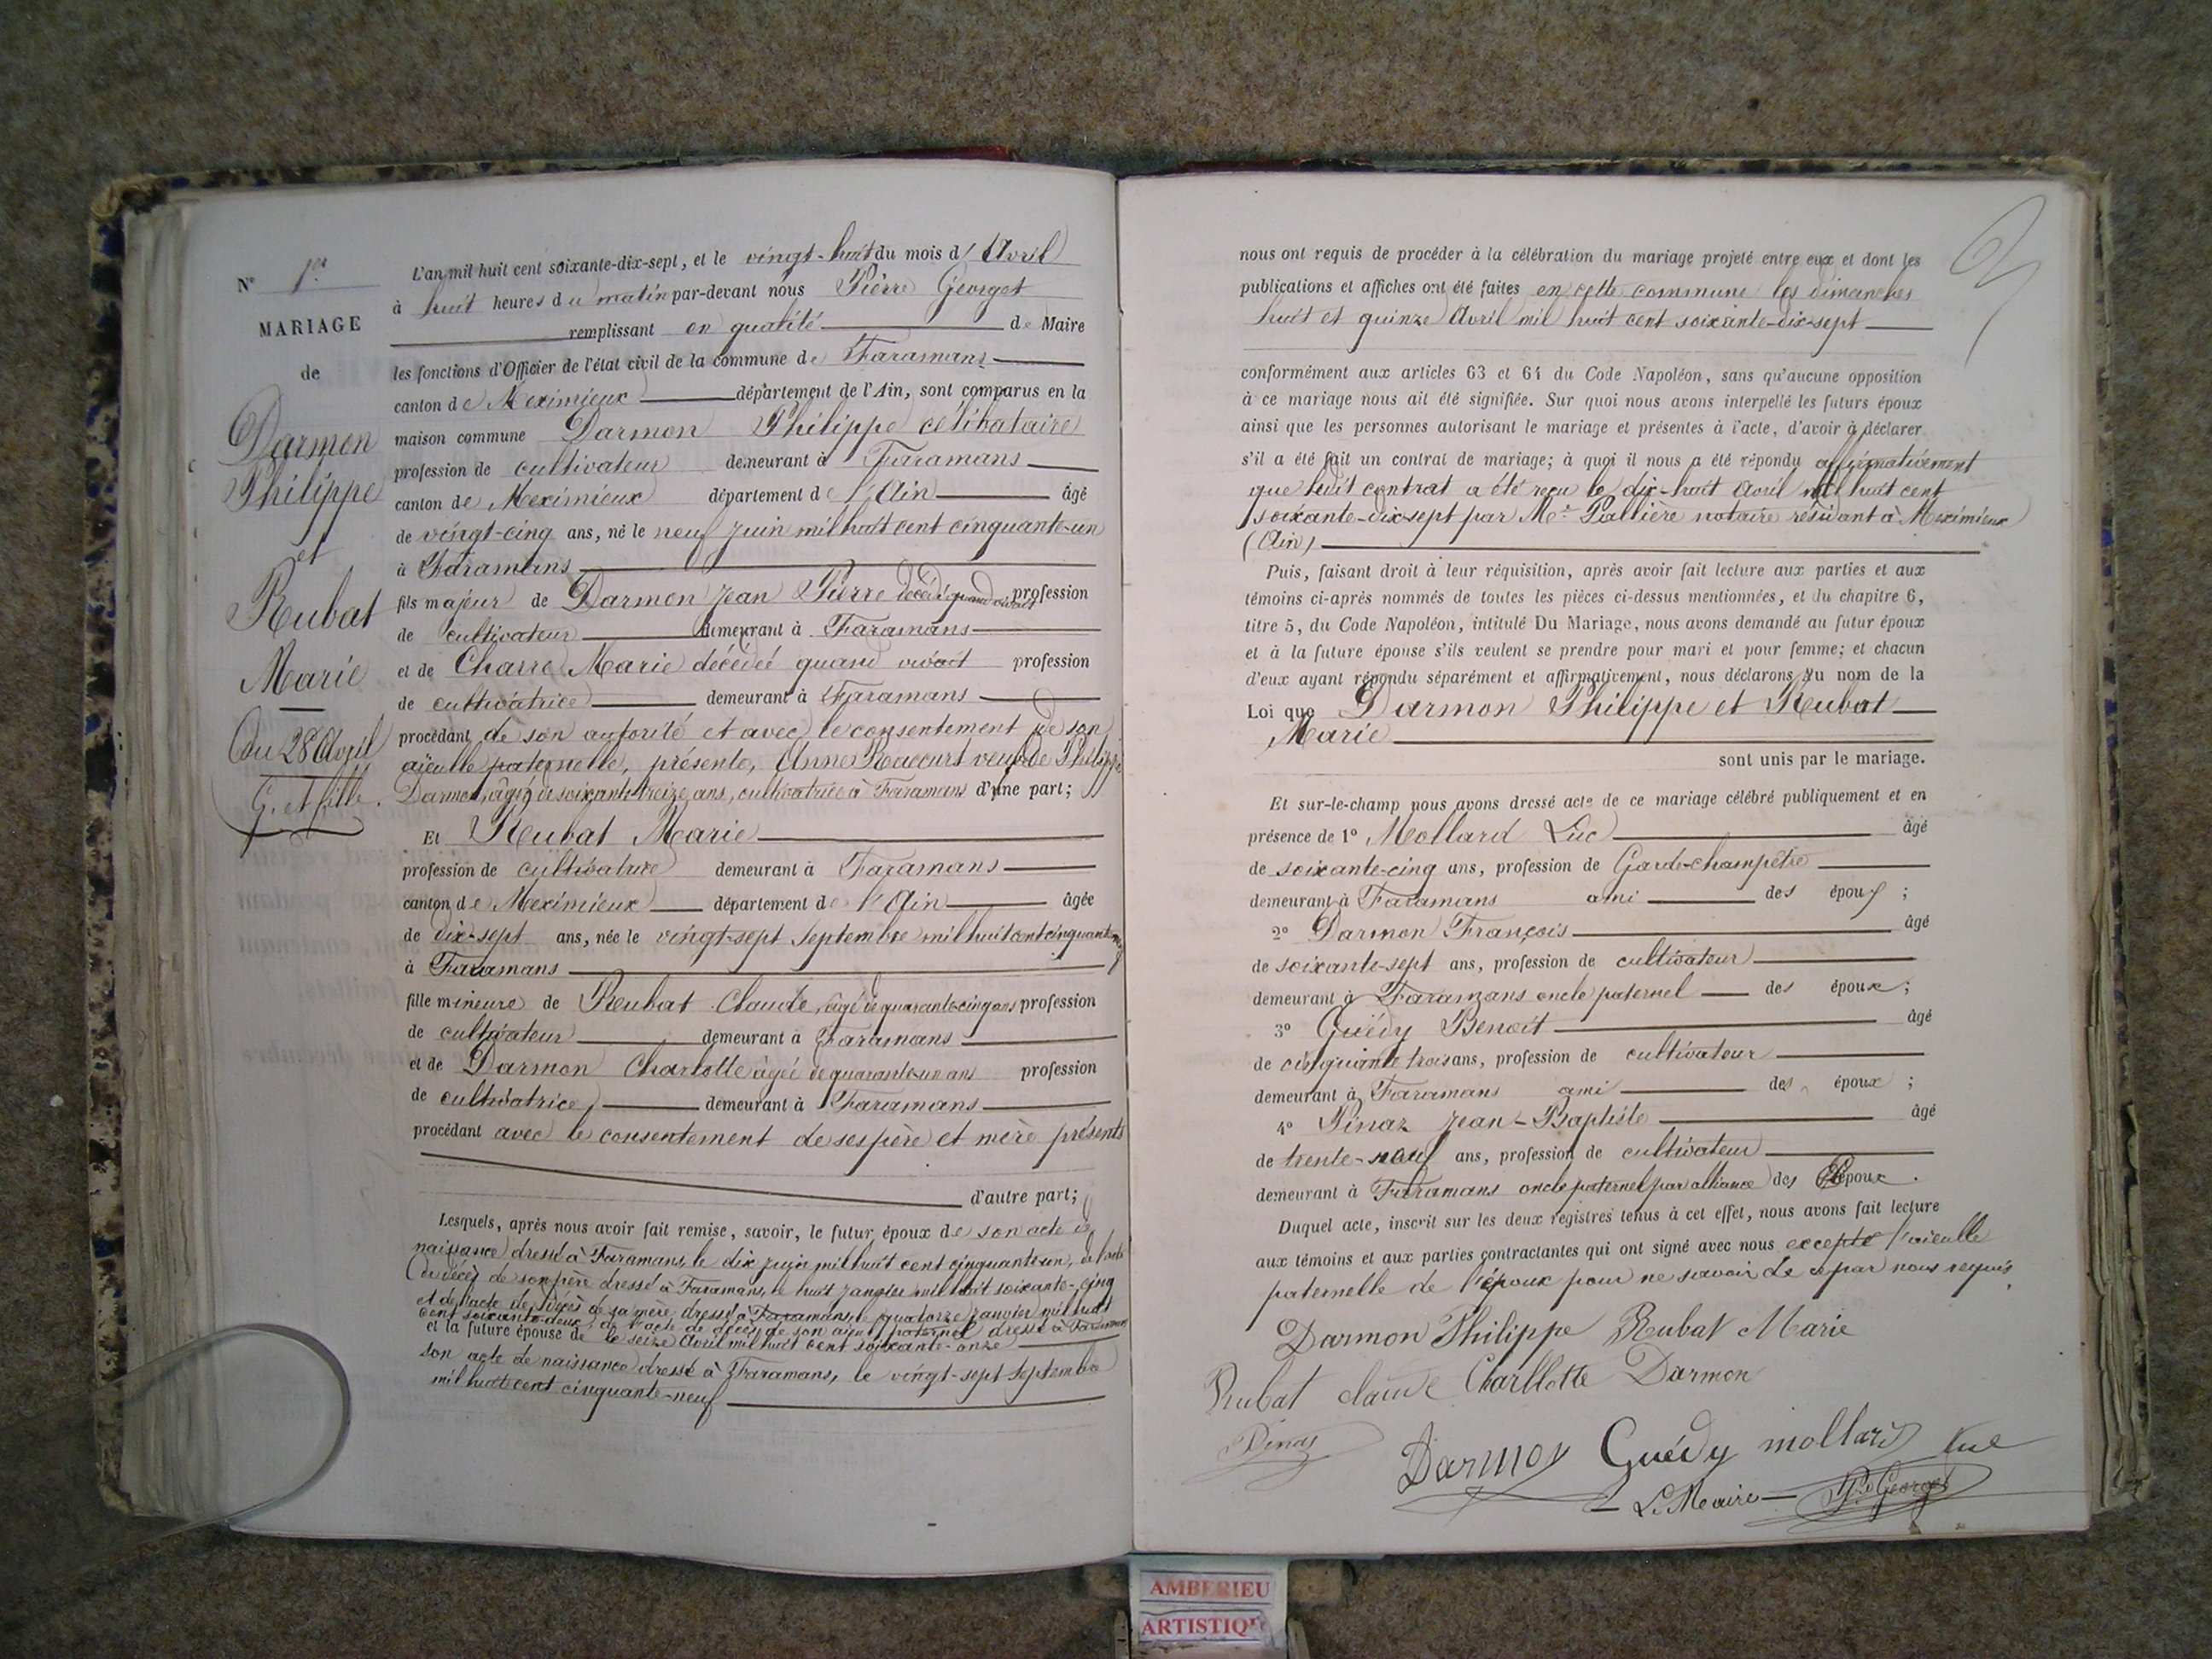 N° 1er
MARIAGE
de
Darmon
Philippe
et
Rubat
Marie
Du 28 Avril
G. et fille.
L'an mil huit cent soixante-dix-sept, et le vingt-huit du mois d'Avril
à huit heures du matin par-devant nous Pierre Georget
remplissant en qualité de Maire
les fonctions d'Officier de l'état civil de la commune de Faramans
canton de Meximieux département de l'Ain, sont comparus en la
maison commune Darmon Philippe célibataire
profession de cultivateur demeurant à Faramans
canton de Meximieux département de l'Ain âgé
de vingt-cinq ans, né le neuf juin mil huit cent cinquante-un
à Faramans
fils majeur de Darmon Jean Pierre décédé quand vivait profession
de cultivateur demeurant à Faramans
et de Charre Marie décédée quand vivait profession
de cultivatrice demeurant à Faramans
procédant de son autorité et avec le consentement de son
aïeulle paternelle, présente, Anne Raccurt veuve de Philippe
Darmon, âgée de soixante-treize ans, cultivatrice à Faramans d'une part;
Et Rubat Marie
profession de cultivatrice demeurant à Faramans
canton de Meximieux département de l'Ain âgée
de dix-sept ans, née le vingt-sept Septembre mil huit cent cinquante neuf
à Faramans
fille mineure de Rubat Claude, âgé de quarante-cinq ans profession
de cultivateur demeurant à Faramans
et de Darmon Charlotte âgée de quarante-un ans profession
de cultivatrice demeurant à Faramans
procédant avec le consentement de ses père et mère présents
d'autre part;
Lesquels, après nous avoir fait remise, savoir, le futur époux de son acte de
naissance dressé à Faramans, le dix juin mil huit cent cinquante-un, de l'acte
de décès de son père dressé à Faramans, le huit janvier mil huit soixante-cinq
et de l'acte de décès de sa mère dressé à Faramans, le quatorze janvier mil huit
cent soixante-deux, de l'acte de décès de son aïeul paternel dressé à Faramans
et la future épouse de le seize Avril mil huit cent soixante-onze
son acte de naissance dressé à Faramans, le vingt-sept Septembre
mil huit cent cinquante-neuf
nous ont requis de procéder à la célébration du mariage projeté entre eux et dont les
publications et affiches ont été faites en cette commune les dimanches
huit et quinze Avril mil huit cent soixante-dix-sept
conformément aux articles 63 et 64 du Code Napoléon, sans qu'aucune opposition
à ce mariage nous ait été signifiée. Sur quoi nous avons interpellé les futurs époux
ainsi que les personnes autorisant le mariage et présentes à l'acte, d'avoir à déclarer
s'il a été fait un contrat de mariage; à quoi il nous a été répondu affirmativement
que ledit contrat a été reçu le dix-huit Avril mil huit cent
soixante-dix-sept par Me Pallière notaire résidant à Meximieux
(Ain)
Puis, faisant droit à leur réquisition, après avoir fait lecture aux parties et aux
témoins ci-après nommés de toutes les pièces ci-dessus mentionnées, et du chapitre 6,
titre 5, du Code Napoléon, intitulé Du Mariage, nous avons demandé au futur époux
et à la future épouse s'ils veulent se prendre pour mari et pour femme; et chacun
d'eux ayant répondu séparément et affirmativement, nous déclarons au nom de la
Loi que Darmon Philippe et Rubat
Marie
sont unis par le mariage.
Et sur-le-champ nous avons dressé acte de ce mariage célébré publiquement et en
présence de 1° Mollard Luc âgé
de soixante-cinq ans, profession de Garde-champêtre
demeurant à Faramans ami des époux;
2° Darmon François âgé
de soixante-sept ans, profession de cultivateur
demeurant à Faramans oncle paternel des époux;
3° Guédy Benoit âgé
de cinquante trois ans, profession de cultivateur
demeurant à Faramans ami des époux;
4° Pinaz Jean-Baptiste âgé
de trente-neuf ans, profession de cultivateur
demeurant à Faramans oncle paternel par alliance des époux.
Duquel acte, inscrit sur les deux registres tenus à cet effet, nous avons fait lecture
aux témoins et aux parties contractantes qui ont signé avec nous excepté l'aïeulle
paternelle de l'époux pour ne savoir de ce par nous requis
Darmon Philippe Rubat Marie
Rubat claude Charllotte Darmon
Pinaz
Darmon Guédy mollard Luc
Le Maire Pre Georget
AMBERIEU
ARTISTIQUE